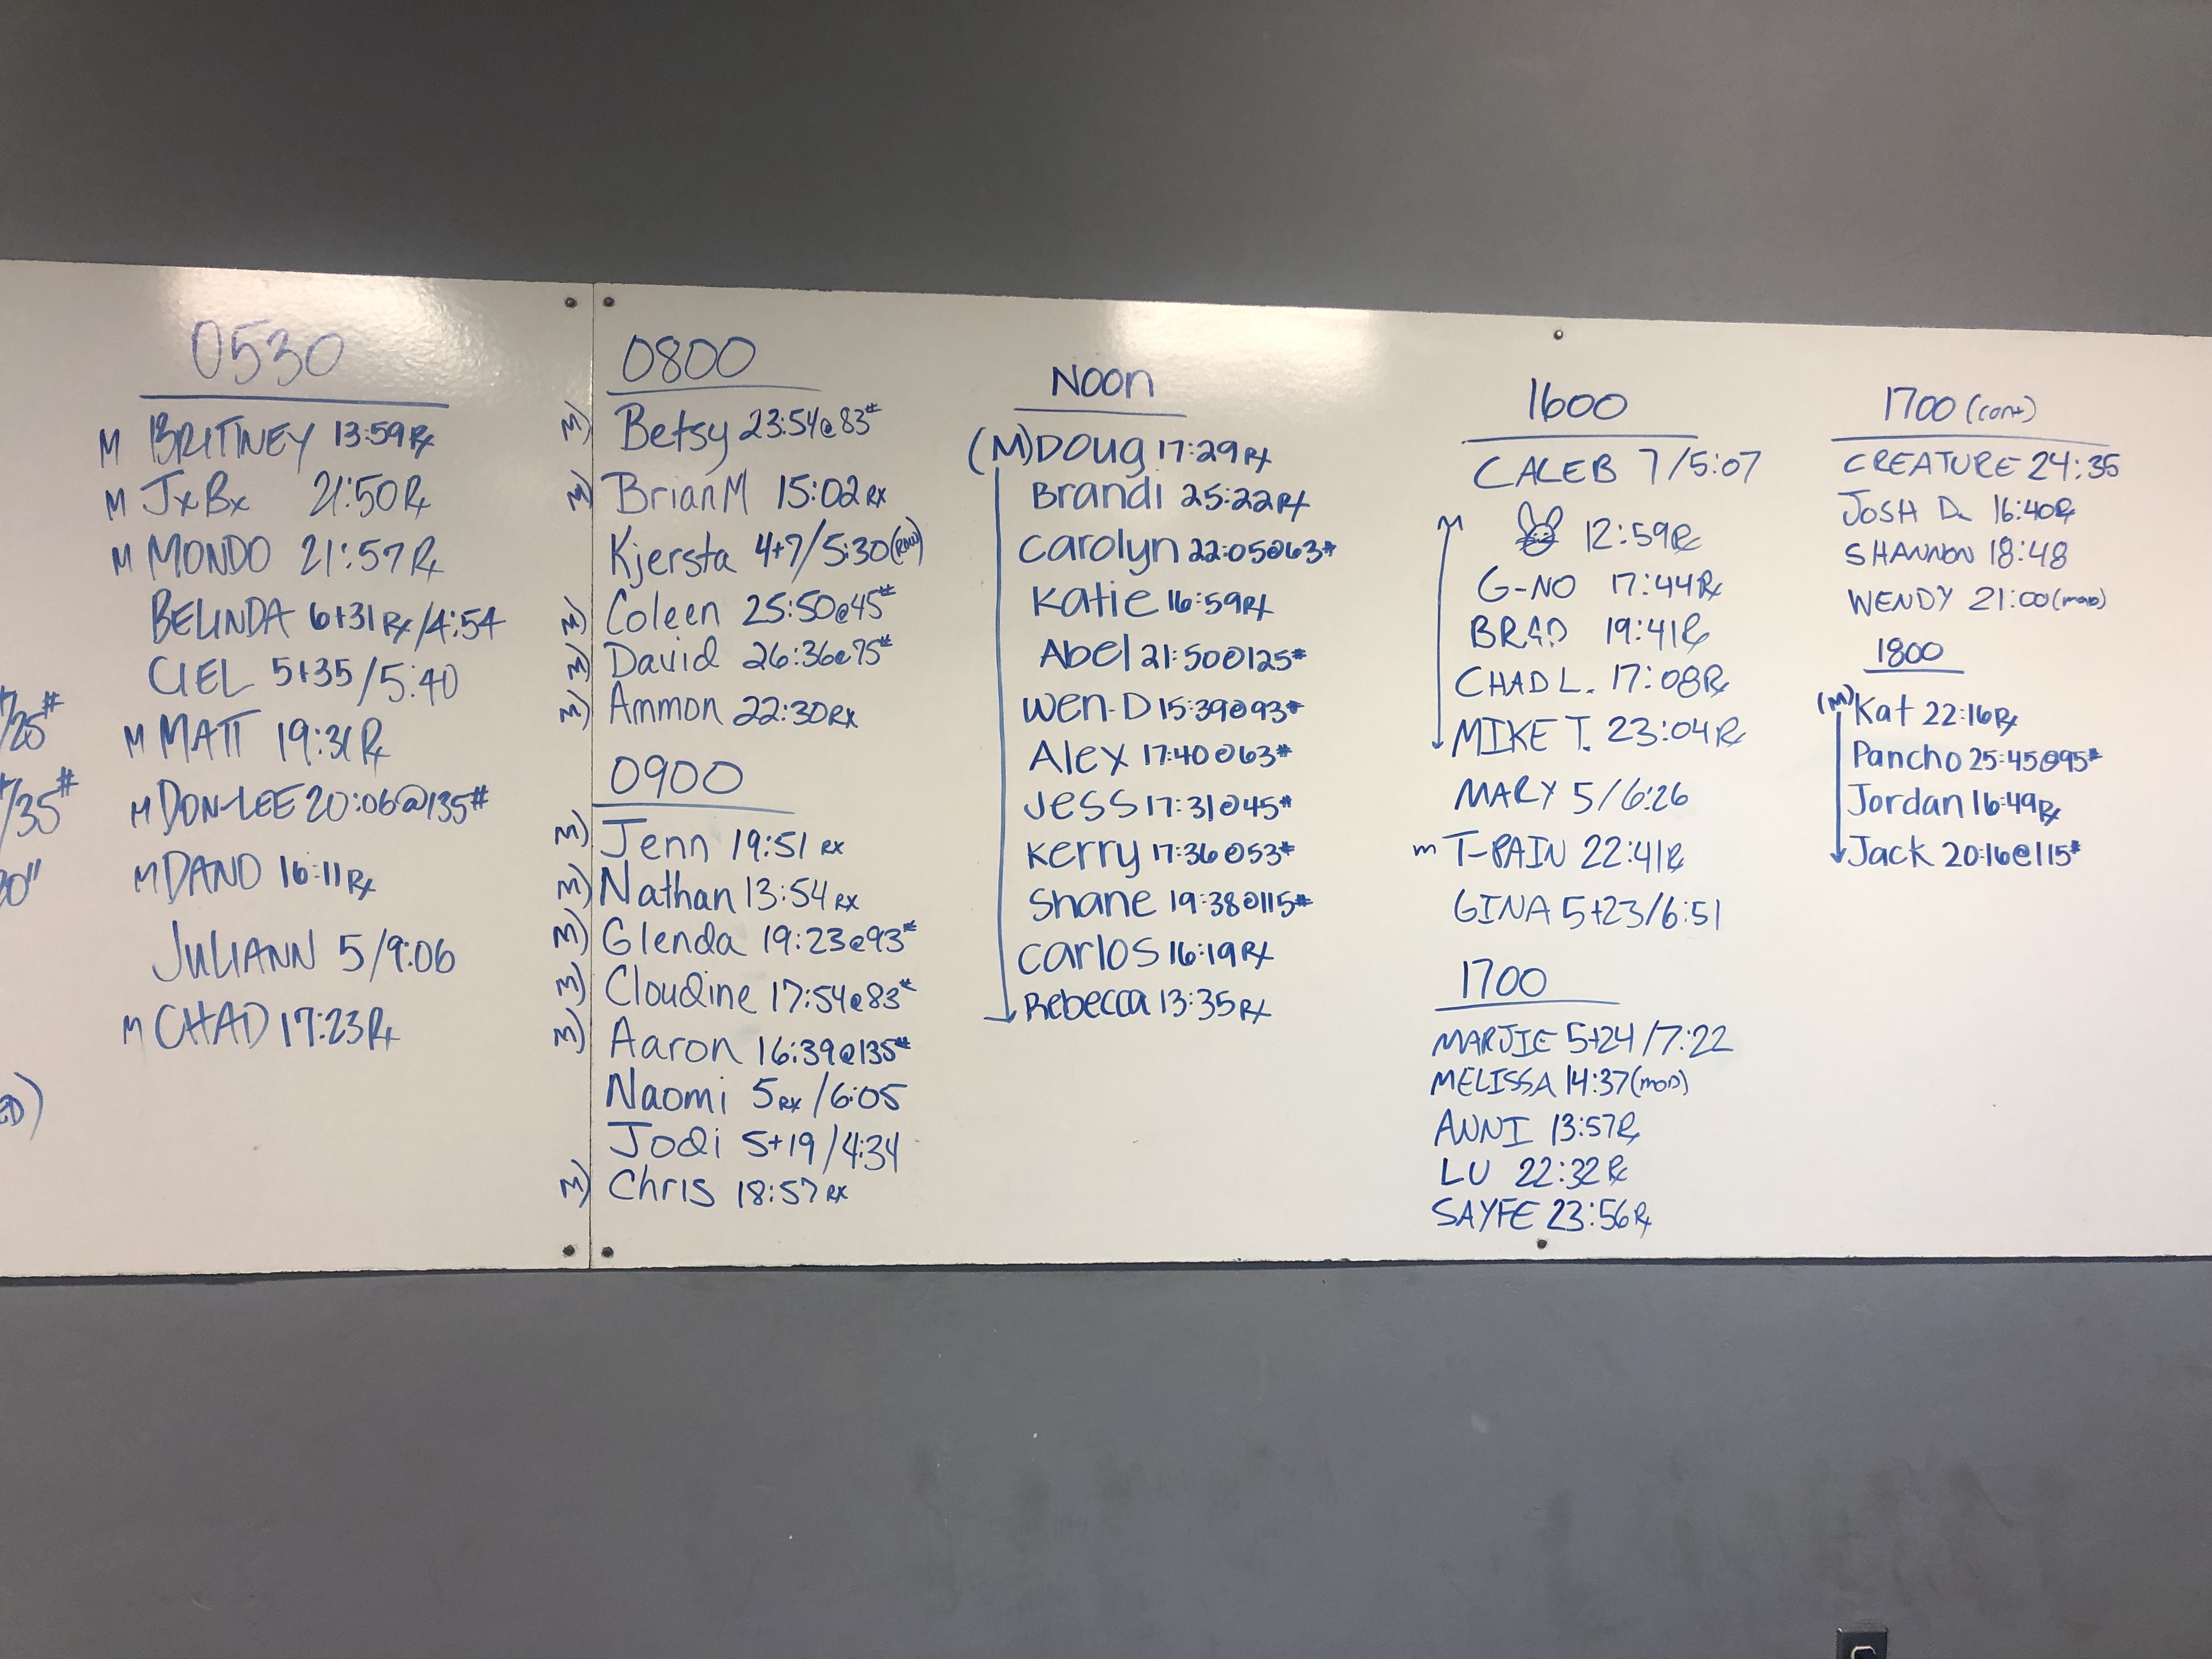 /25#
/35#
0530
M BRITTNEY 13:59 Rx
M JxBx 21:50 Rx
M MONDO 21:57 Rx
BELINDA 6+31 Rx/4:54
CIEL 5+35/5:40
M MATT 19:31 Rx
M DON-LEE 20:06@135#
M DANO 16:11 Rx
JULIANN 5/9:06
M CHAD 17:23 Rx
0800
M) Betsy 23:54@83#
M) Brian M 15:02 RX
Kjersta 4+7/5:30 (ROW)
M) Coleen 25:50@45#
M) David 26:36@75#
M) Ammon 22:30 RX
0900
M) Jenn 19:51 RX
M) Nathan 13:54 RX
M) Glenda 19:23@93#
M) Cloudine 17:54@83#
M) Aaron 16:39@135#
Naomi 5 RX/6:05
Jodi 5+19/4:34
M) Chris 18:57 RX
Noon
(M) Doug 17:29 Rx
Brandi 25:22 Rx
Carolyn 22:05@63#
Katie 16:59 Rx
Abel 21:50@125#
Wen-D 15:39@93#
Alex 17:40@63#
Jess 17:31@45#
Kerry 17:36@53#
Shane 19:38@115#
Carlos 16:19 Rx
Rebecca 13:35 Rx
1600
CALEB 7/5:07
M 12:59 Rx
G-NO 17:44 Rx
BRAD 19:41 Rx
CHAD L. 17:08 Rx
MIKE T. 23:04 Rx
MARY 5/6:26
m T-PAIN 22:41 Rx
GINA 5+23/6:51
1700
MARJIE 5+24/7:22
MELISSA 14:37 (MOD)
ANNI 13:57 Rx
LU 22:32 Rx
SAYFE 23:56 Rx
1700 (cont)
CREATURE 24:35
JOSH D. 16:40 Rx
SHANNON 18:48
WENDY 21:00 (MOD)
1800
(M) Kat 22:16 Rx
Pancho 25:45@95#
Jordan 16:49 Rx
Jack 20:16@115#